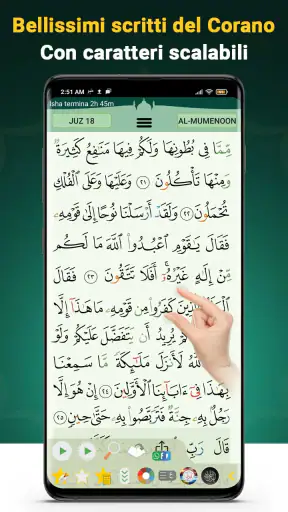 Bellissimi scritti del Corano
Con caratteri scalabili
2:51 AM
Isha termina 2h 45m
JUZ 18 AL-MUMENOON
مِّمَّا فِي بُطُونِهَا وَلَكُمْ فِيهَا مَنَٰفِعُ كَثِيرَةٌ
وَمِنْهَا تَأْكُلُونَ ٢١ وَعَلَيْهَا وَعَلَى ٱلْفُلْكِ
تُحْمَلُونَ ٢٢ وَلَقَدْ أَرْسَلْنَا نُوحًا إِلَىٰ قَوْمِهِۦ
فَقَالَ يَٰقَوْمِ ٱعْبُدُوا۟ ٱللَّهَ مَا لَكُم
مِّنْ إِلَٰهٍ غَيْرُهُۥٓ أَفَلَا تَتَّقُونَ ٢٣ فَقَالَ
كَفَرُوا۟ مِن قَوْمِهِۦ مَا هَٰذَآ إِلَّا
يُرِيدُ أَن يَتَفَضَّلَ عَلَيْكُمْ وَلَوْ
ٱللَّهُ لَأَنزَلَ مَلَٰٓئِكَةً مَّا سَمِعْنَا
بِهَٰذَا فِىٓ ءَابَآئِنَا ٱلْأَوَّلِينَ ٢٤ إِنْ هُوَ إِلَّا
رَجُلٌۢ بِهِۦ جِنَّةٌ فَتَرَبَّصُوا۟ بِهِۦ حَتَّىٰ حِينٍ ٢٥
قَالَ رَبِّ